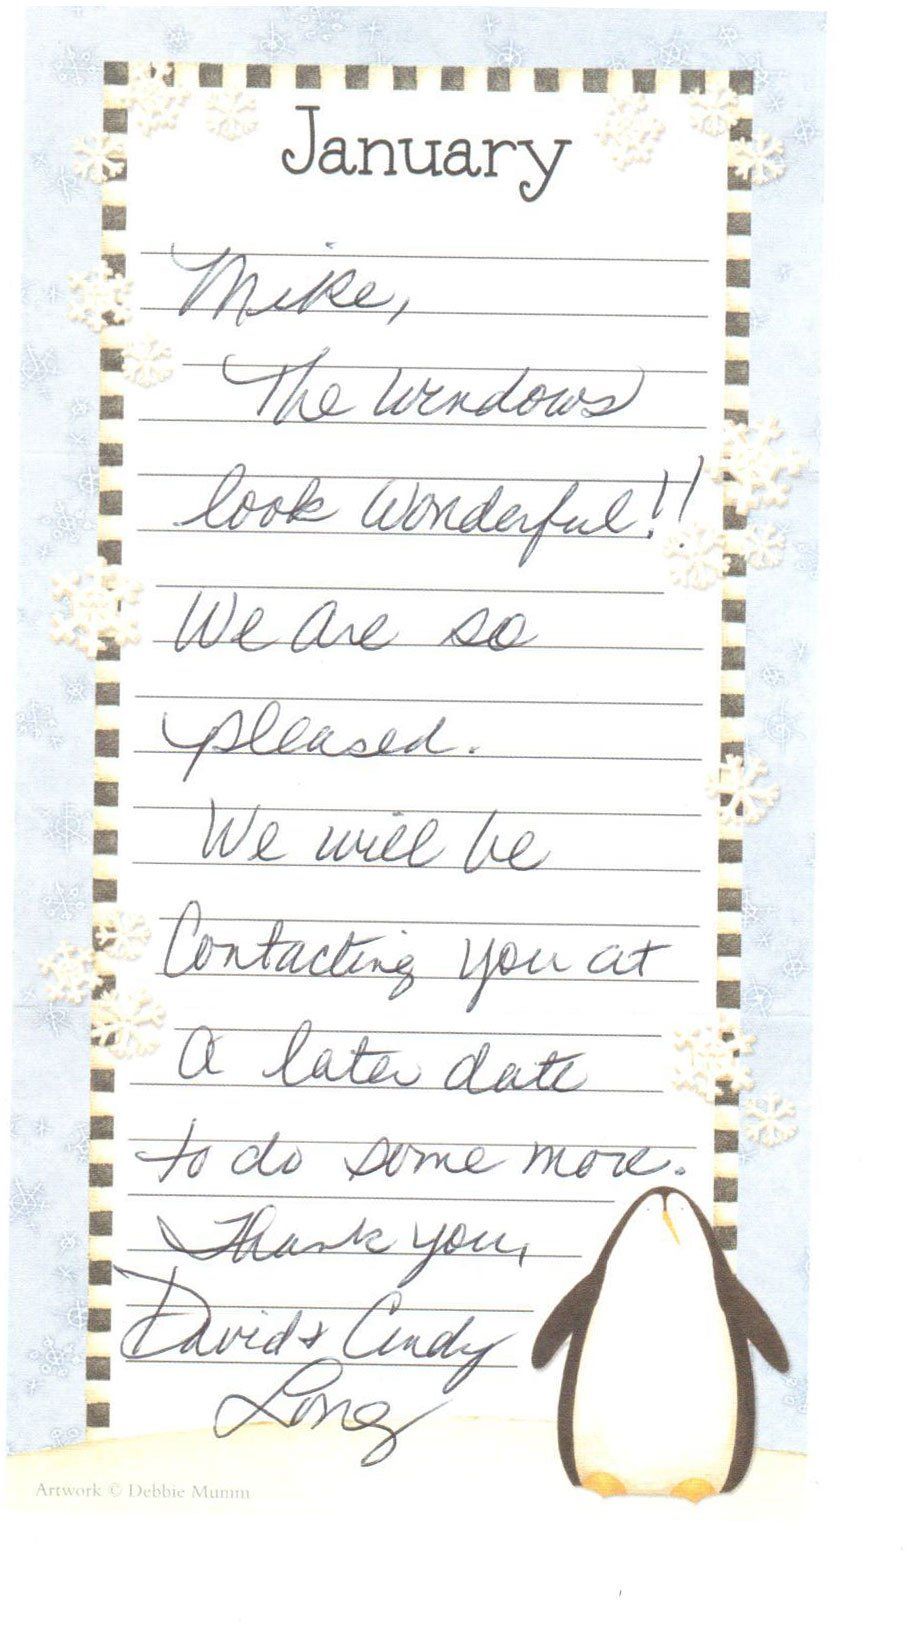 January
Mike,
The windows
look wonderful!!
We are so
pleased.
We will be
Contacting you at
a later date
to do some more.
Thank you,
David & Cindy
Long
Artwork © Debbie Mumm